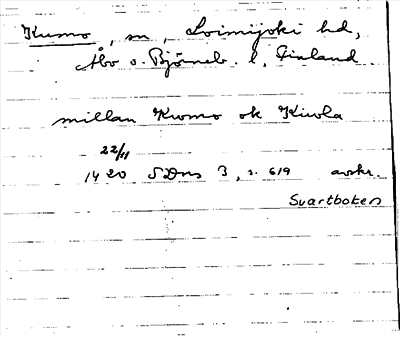 Kumo, sn, Loimijoki hd,
Åbo o. Björneb. l, Finland.
millan Kwmo ok Kiwla
22/11
1420 SDns 3, s. 619 avskr.
Svartboken